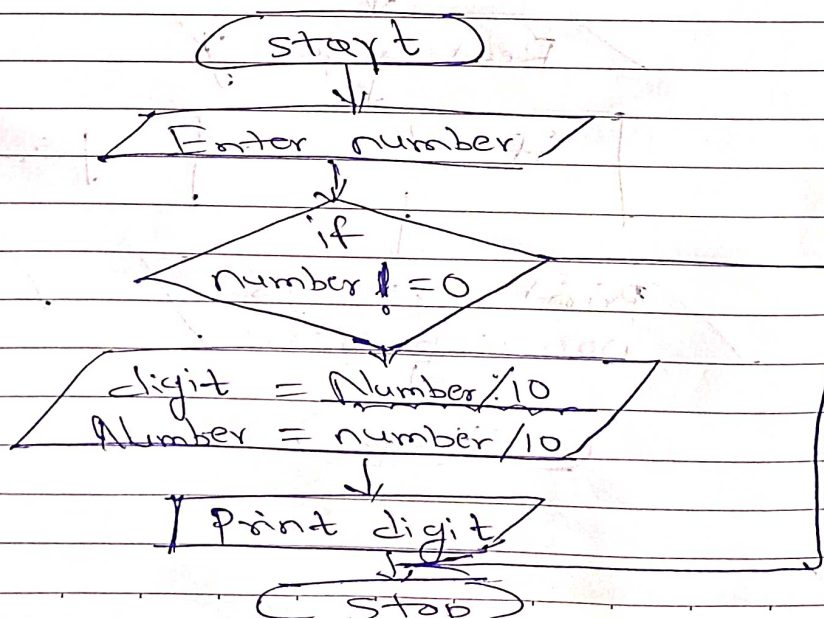 start
Enter number
if
number != 0
digit = Number%10
Number = number/10
Print digit
Stop